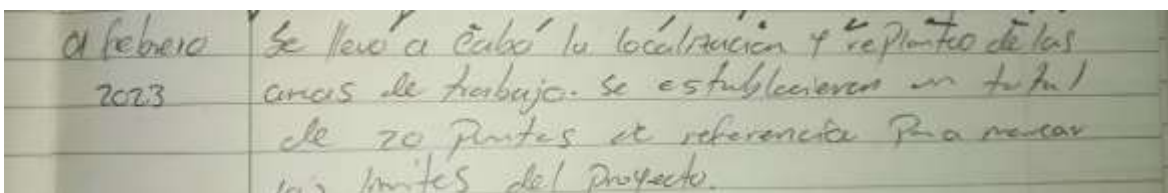 01 febrero Se llevó a cabó la localización y replanteo de las
2023 areas de trabajo. Se establecieron un total
de 20 puntos de referencia para marcar
los limites del proyecto.